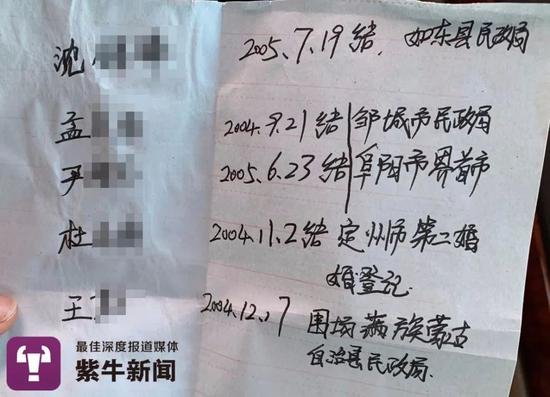 沈 2005.7.19结, 如东县民政局
孟 2004.9.21结 邹城市民政局
尹 2005.6.23结 阜阳市界首市
杜 2004.11.2结 定州师第二婚
婚登记.
王 2004.12.17 围场满族蒙古
自治县民政局.
最佳深度报道媒体
紫牛新闻